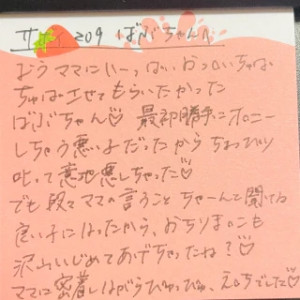 209 ばぶちゃんへ
ママにいーっぱいおっぱいちゅぱ
ちゅぱさせてもらいたかった
ばぶちゃん♡ 最初勝手にオナニー
しちゃう悪い子だったからちょっぴり
叱って意地悪しちゃった♡
でも段々ママの言うことちゃーんと聞ける
良い子になったから、おちりまんこも
沢山いじめてあげちゃったね?♡
ママに密着しながらびゅっびゅ、えっちでした♡